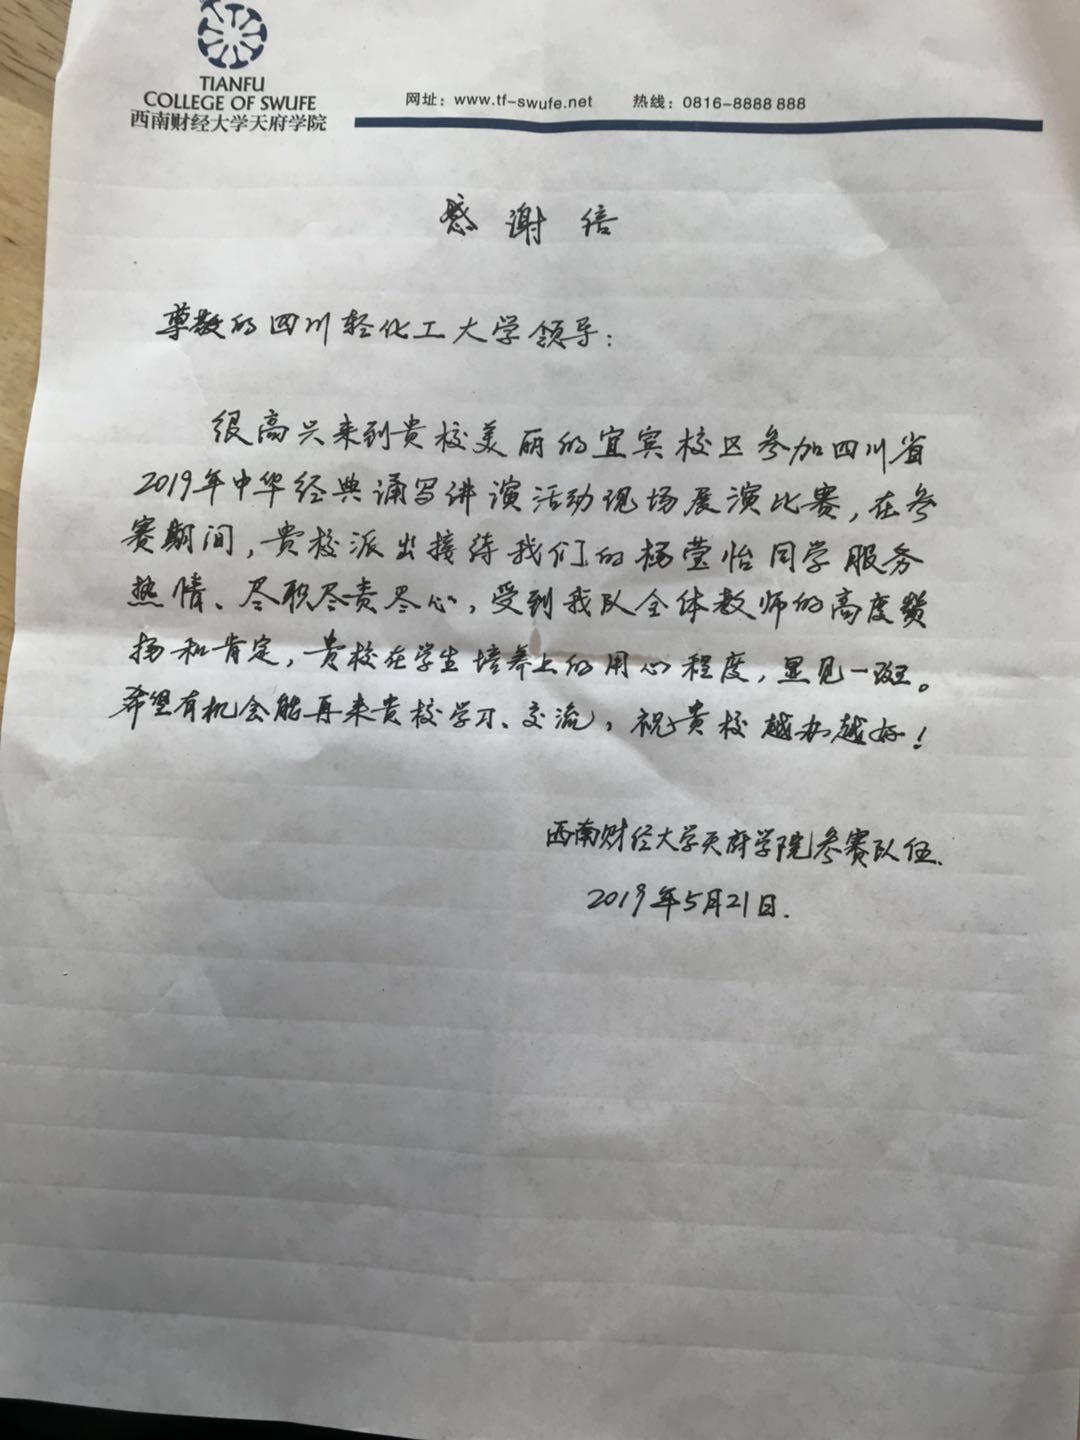 TIANFU
COLLEGE OF SWUFE
西南财经大学天府学院
网址：www.tf-swufe.net 热线：0816-8888 888
感谢信
尊敬的四川轻化工大学领导：
很高兴来到贵校美丽的宜宾校区参加四川省
2019年中华经典诵写讲演活动现场展演比赛，在参
赛期间，贵校派出接待我们的杨莹怡同学服务
热情、尽职尽责尽心，受到我队全体教师的高度赞
扬和肯定，贵校在学生培养上的用心程度，显见一斑。
希望有机会能再来贵校学习、交流，祝贵校越办越好！
西南财经大学天府学院参赛队伍.
2019年5月21日.